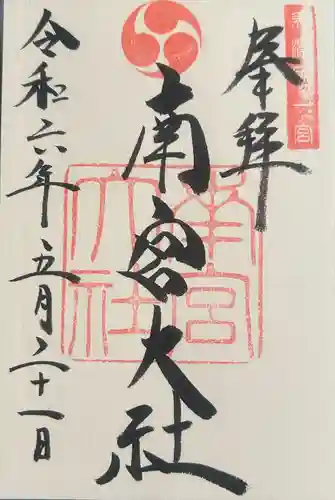 奉拝
南宮大社
令和六年五月二十一日
南宮大社